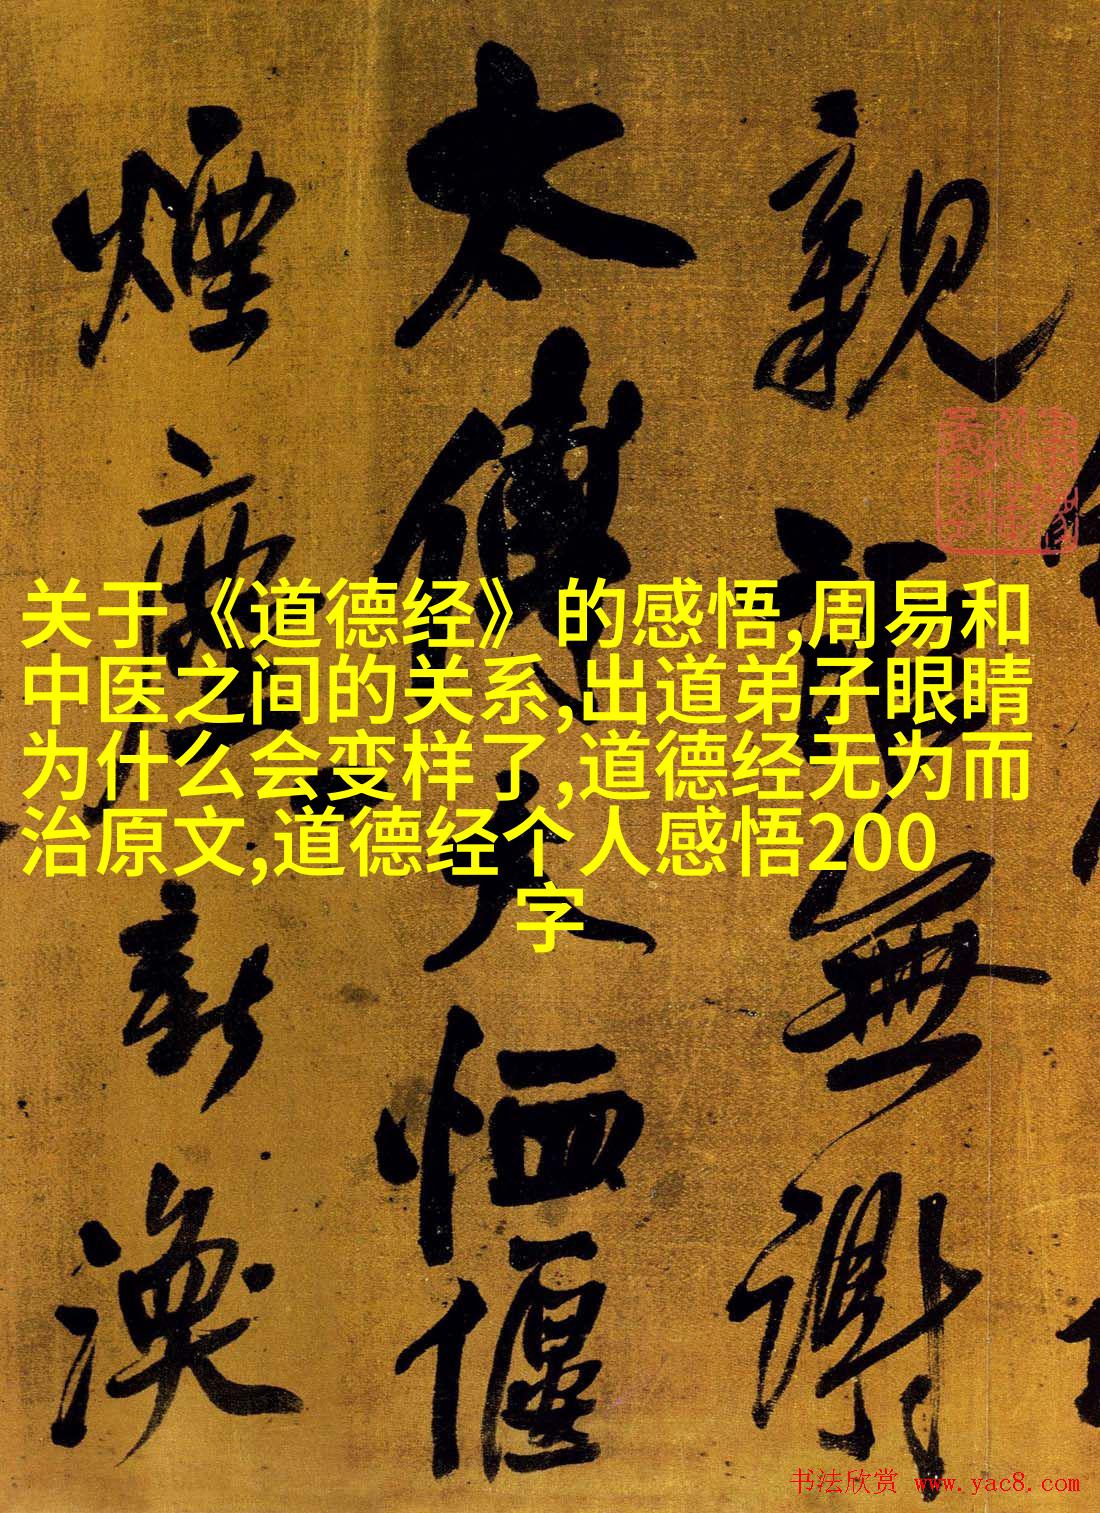 親 無謝
太傅
煙塵新
关于《道德经》的感悟,周易和
中医之间的关系,出道弟子眼睛
为什么会变样了,道德经无为而
治原文,道德经个人感悟200
字
书法欣赏 www.yac8.com